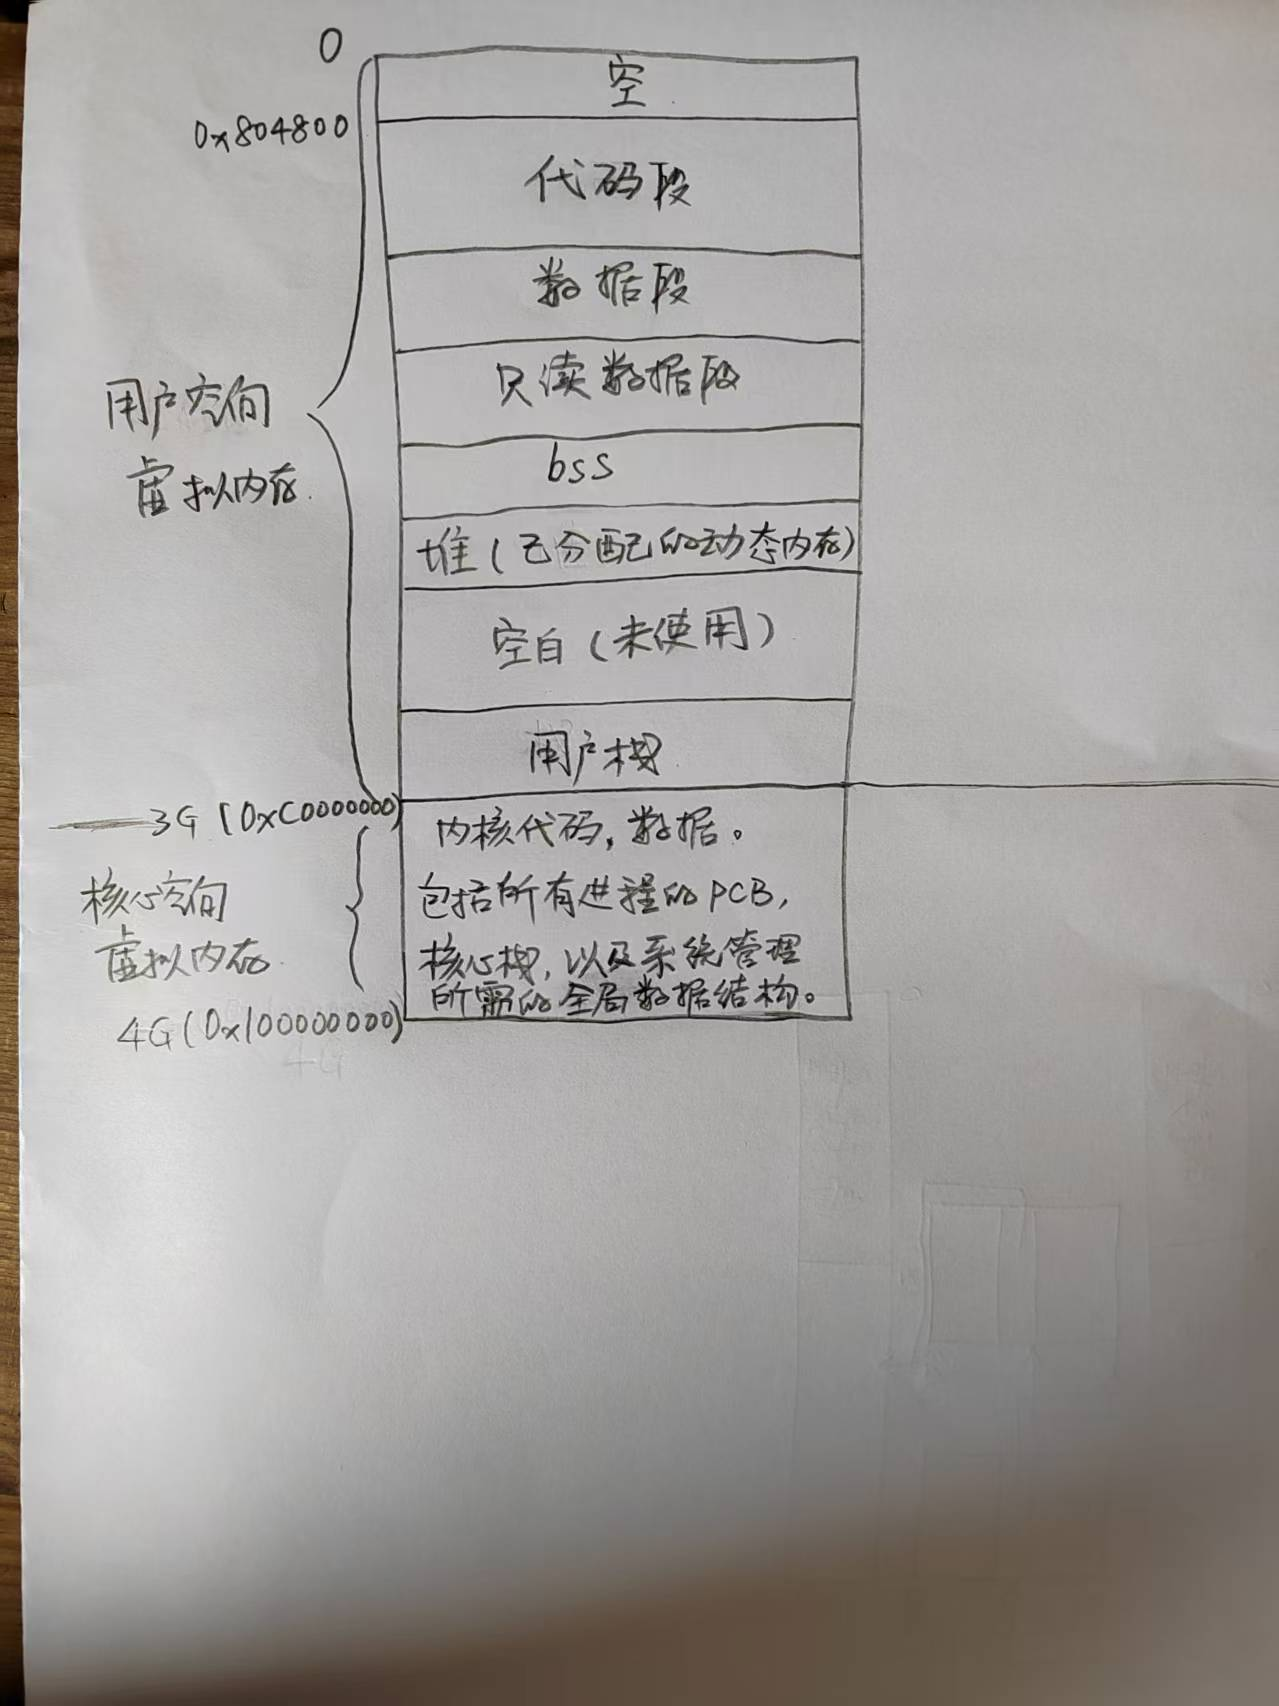 0
空
0x804800
代码段
数据段
只读数据段
用户空间
虚拟内存.
bss
堆(已分配的动态内存)
空白(未使用)
用户栈
3G (0xC0000000)
内核代码,数据。
包括所有进程的PCB,
核心栈,以及系统管理
所需的全局数据结构。
核心空间
虚拟内存
4G(0x100000000)
4G